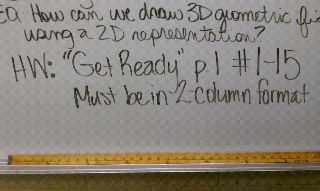 EQ: How can we draw 3D geometric
using a 2D representation?
HW: "Get Ready" p. 1 #1-15
Must be in 2-column format